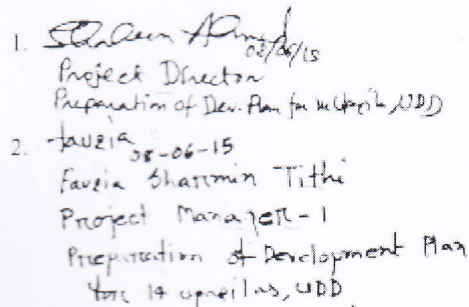 1. Ahmed 08/06/15
Project Director
Preparation of Dev. Plan for 14 Upazila, UDD
2. fauzia 08-06-15
Fauzia Sharmin Tithi
Project Manager-1
Preparation of Development Plan
for 14 upazilas, UDD